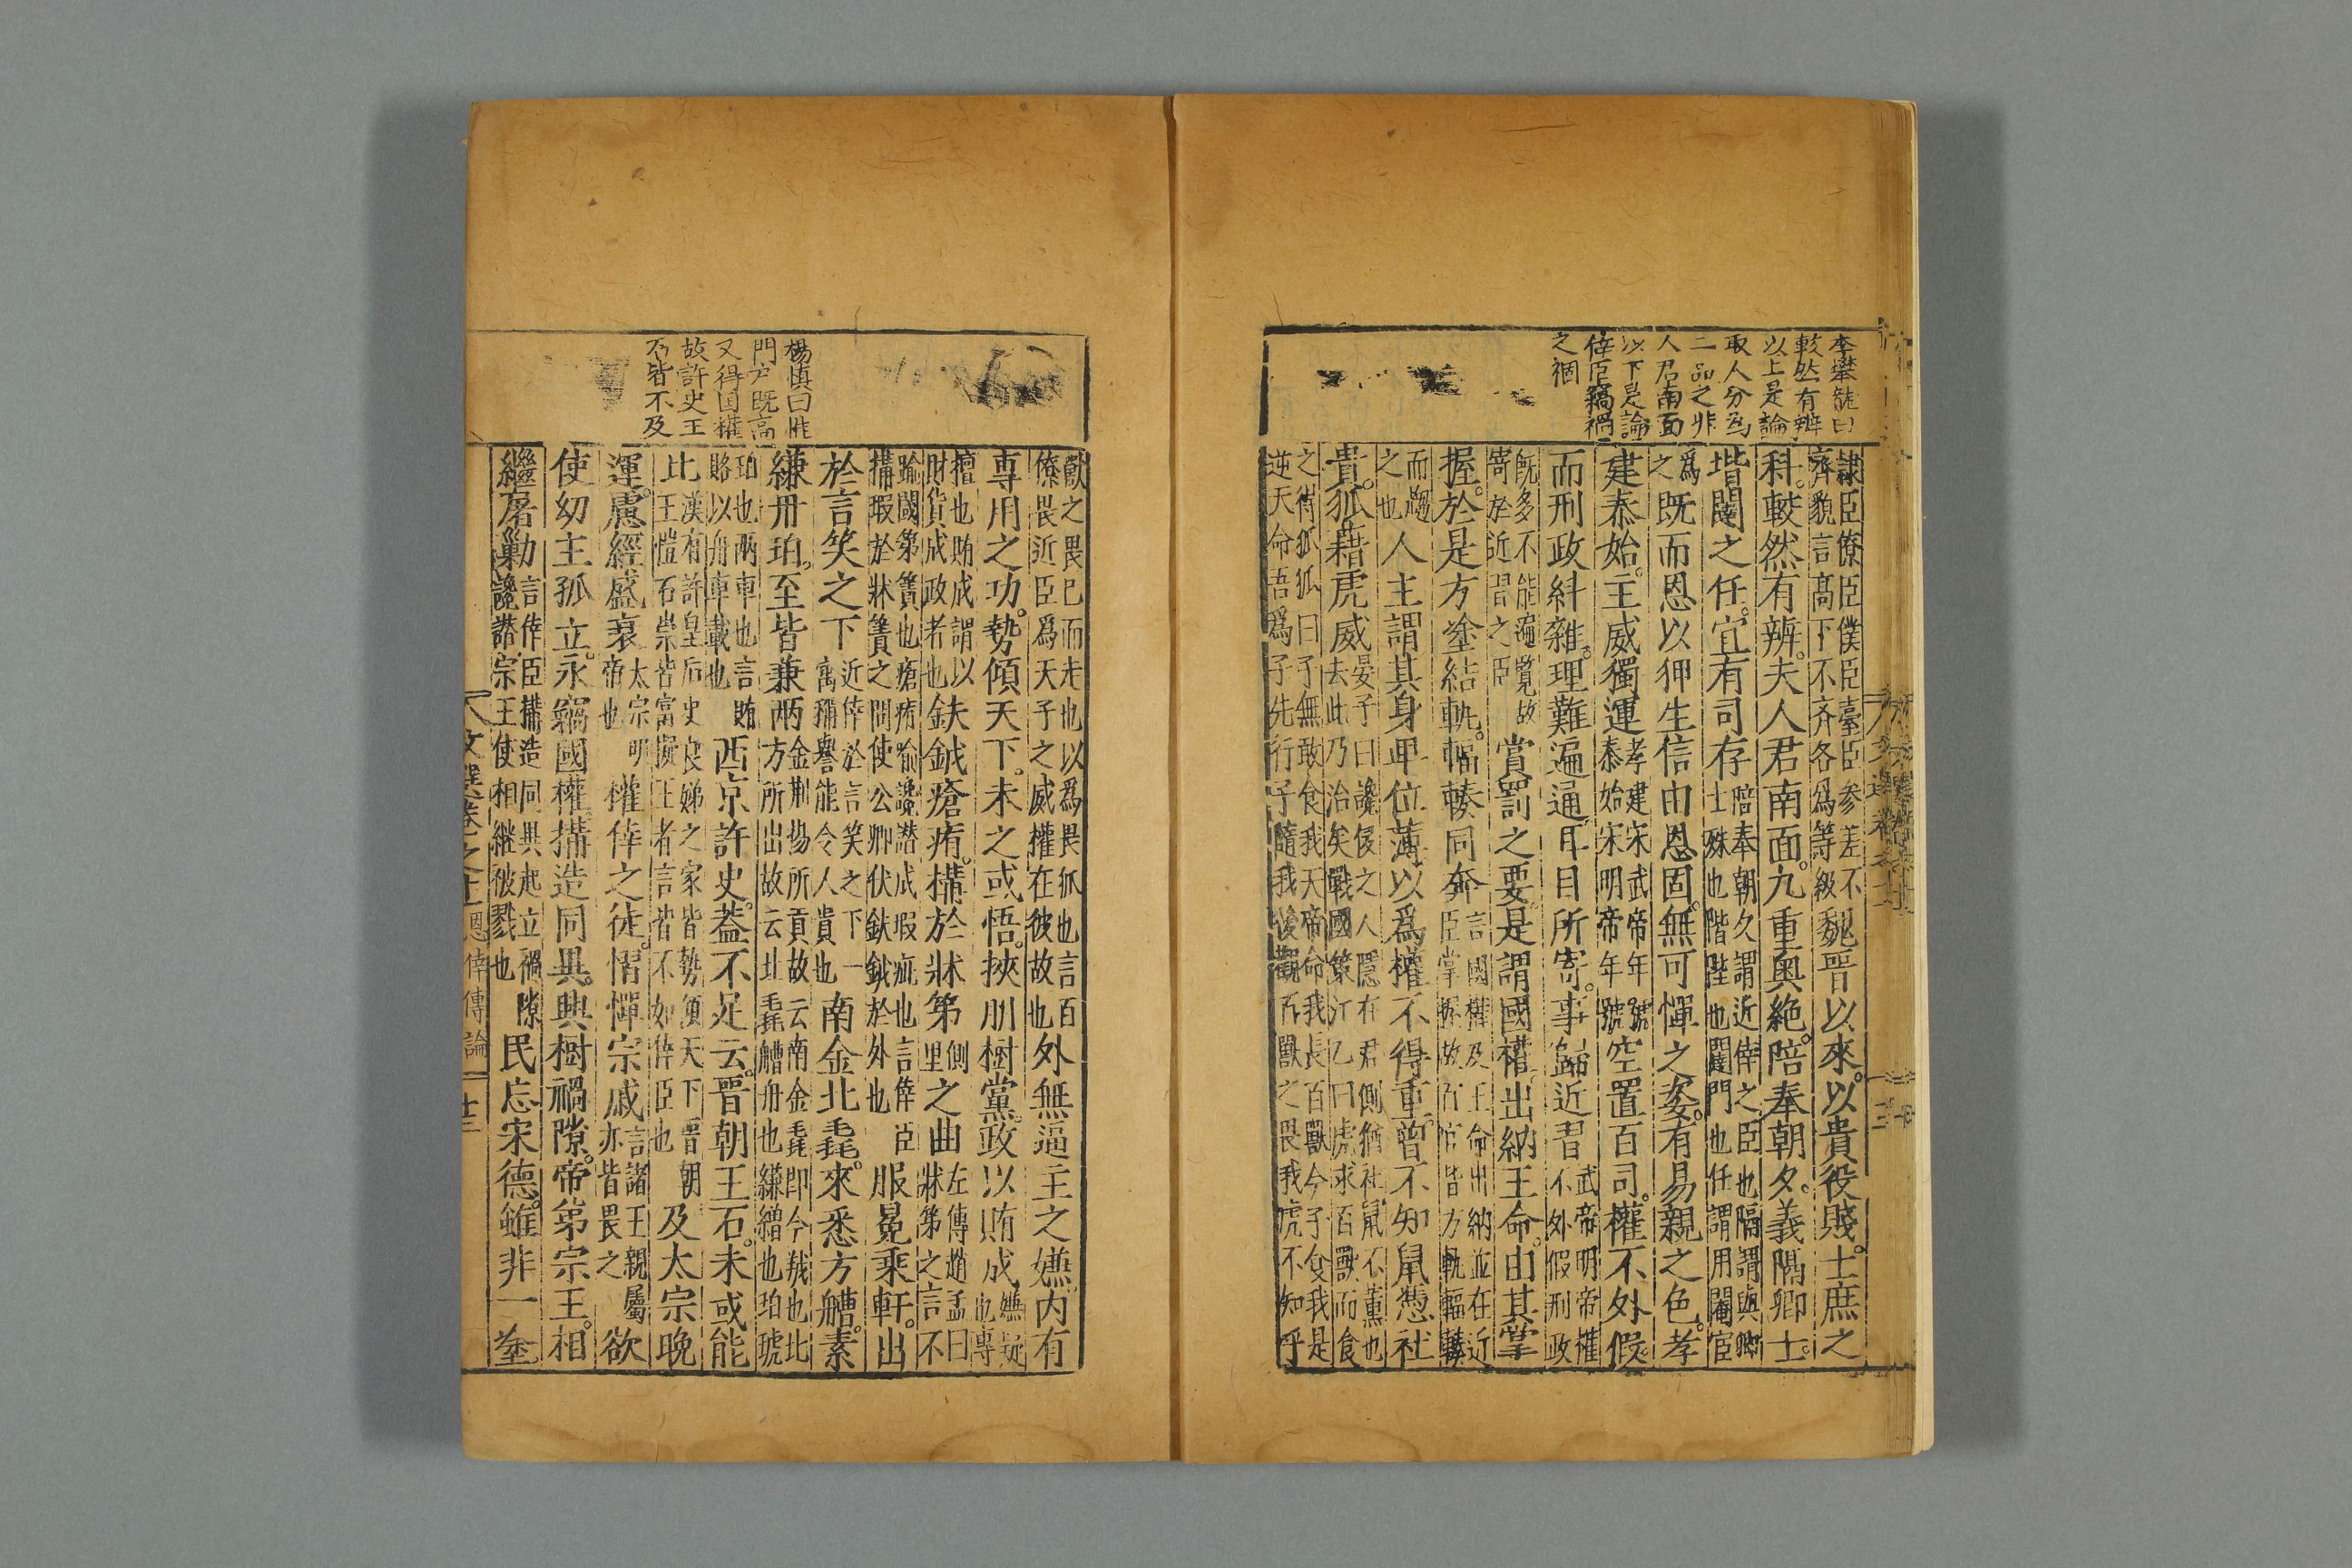 李攀龍曰
較然有辨
以上是論
取人分為
二品之非
人君南面
以下是論
倖臣竊禍
之禍
隷臣僚臣僕臣臺臣参差不
齊貌言髙下不齐各爲等級
魏晋以來。以貴役賤。士庶之
科。較然有辨。夫人君南面。九重奧絶。陪奉朝夕。義隔卿士。
堦闥之任。宜有司存
陪奉朝夕謂近倖之臣也隔謂與卿
士殊也階陛也闥門也任謂用閹宦
爲
之
既而恩以狎生信由恩固。無可憚之姿。有易親之色。孝
建泰始。主威獨運
孝建宋武帝年號
泰始宋明帝年號
空置百司。權不外假。
而刑政糾雜。理難遍通。耳目所寄。事歸近習
武帝明帝權
不外假刑政
旣多不能遍覧故
寄於近習之臣
賞罰之要。是謂國權。出納王命。由其掌
握。於是方塗結軌。輻輳同奔
言國權及王命出納並在近
臣掌握故百官皆方軌輻輳
而趨
之也
人主謂其身卑位薄以爲權不得重。曾不知鼠憑社
貴。狐藉虎威
晏子曰讒佞之人隱在君側猶社鼠不薰也
去此乃治矣戰國策江乙曰虎求百獸而食
之得狐狐曰子無敢食我天帝命我長百獸今子食我是
逆天命吾爲子先行子隨我後觀百獸之畏我虎不知乎
楊慎曰惟
門户既高
又得国權
故許史王
石皆不及
獸之畏已而走也以爲畏狐也言百
僚畏近臣爲天子之威權在彼故也
外無逼主之嫌。内有
專用之功。勢傾天下。未之或悟。挾朋樹黨。政以賄成
嫌疑
也專
擅也賄成謂以
財貨成政者也
鈇鉞瘡痏。構於牀第
側
里
之曲
左傳趙孟曰
牀第之言不
踰閾第簀也瘡痏喻讒譖成瑕疵也言倖臣
搆瑕於牀簀之間使公卿伏鈇鉞於外也
服冕乘軒。出
於言笑之下
近倖於言笑之下一
寓稱譽能令人貴也
南金北毳。來悉方艚。素
縑丹珀。至皆兼兩
金荆揚所貢故云南金毳即今羢也北
方所出故云北毳艚舟也縑繒也珀琥
珀也兩車也言賄
賂以舟車載也
西京許史。葢不足云。晋朝王石。未或能
比
漢有許皇后史良娣之家皆勢傾天下晋朝
王愷石崇皆富擬王者言皆不如倖臣也
及太宗晚
運。慮經盛衰
太宗明
帝也
權倖之徒。慴憚宗戚
言諸王親屬
亦皆畏之
欲
使幼主孤立。永竊國權。搆造同異。興樹禍隙。帝弟宗王。相
繼屠勦
言倖臣搆造同異起立禍隙
讒譖宗王使相継被戮也
民忘宋德。雖非一塗
文選卷之十
恩倖傳論